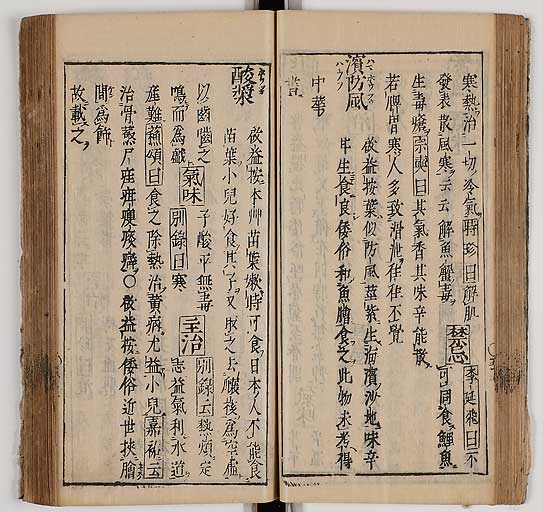 寒熱治一切冷氣時珍曰解肌
發表散風寒云云解魚蟹毒
禁忌李廷飛曰不可同食鯉魚
生毒瘡宗奭曰其氣香其味辛能散
若脾胃寒人多致滑泄往往不覺
濱防風
啟益按葉似防風莖紫生海濱沙地味辛
中華
牛生食良倭俗和魚膾食之此物未考得
酸漿
啟益按本艸苗葉嫩時可食日本人不能食
苗葉小兒好食其子又
去
後爲空虛
以齒嚙之
鳴而爲戲
氣味
子酸平無毒
別錄曰寒
主治
別錄云熱煩定
志益氣利水道
產難蘇頌曰食之除熱治黃病尤益小兒嘉祐云
治骨蒸
〇啟益按倭俗近世挾膾
間爲飾
故載之